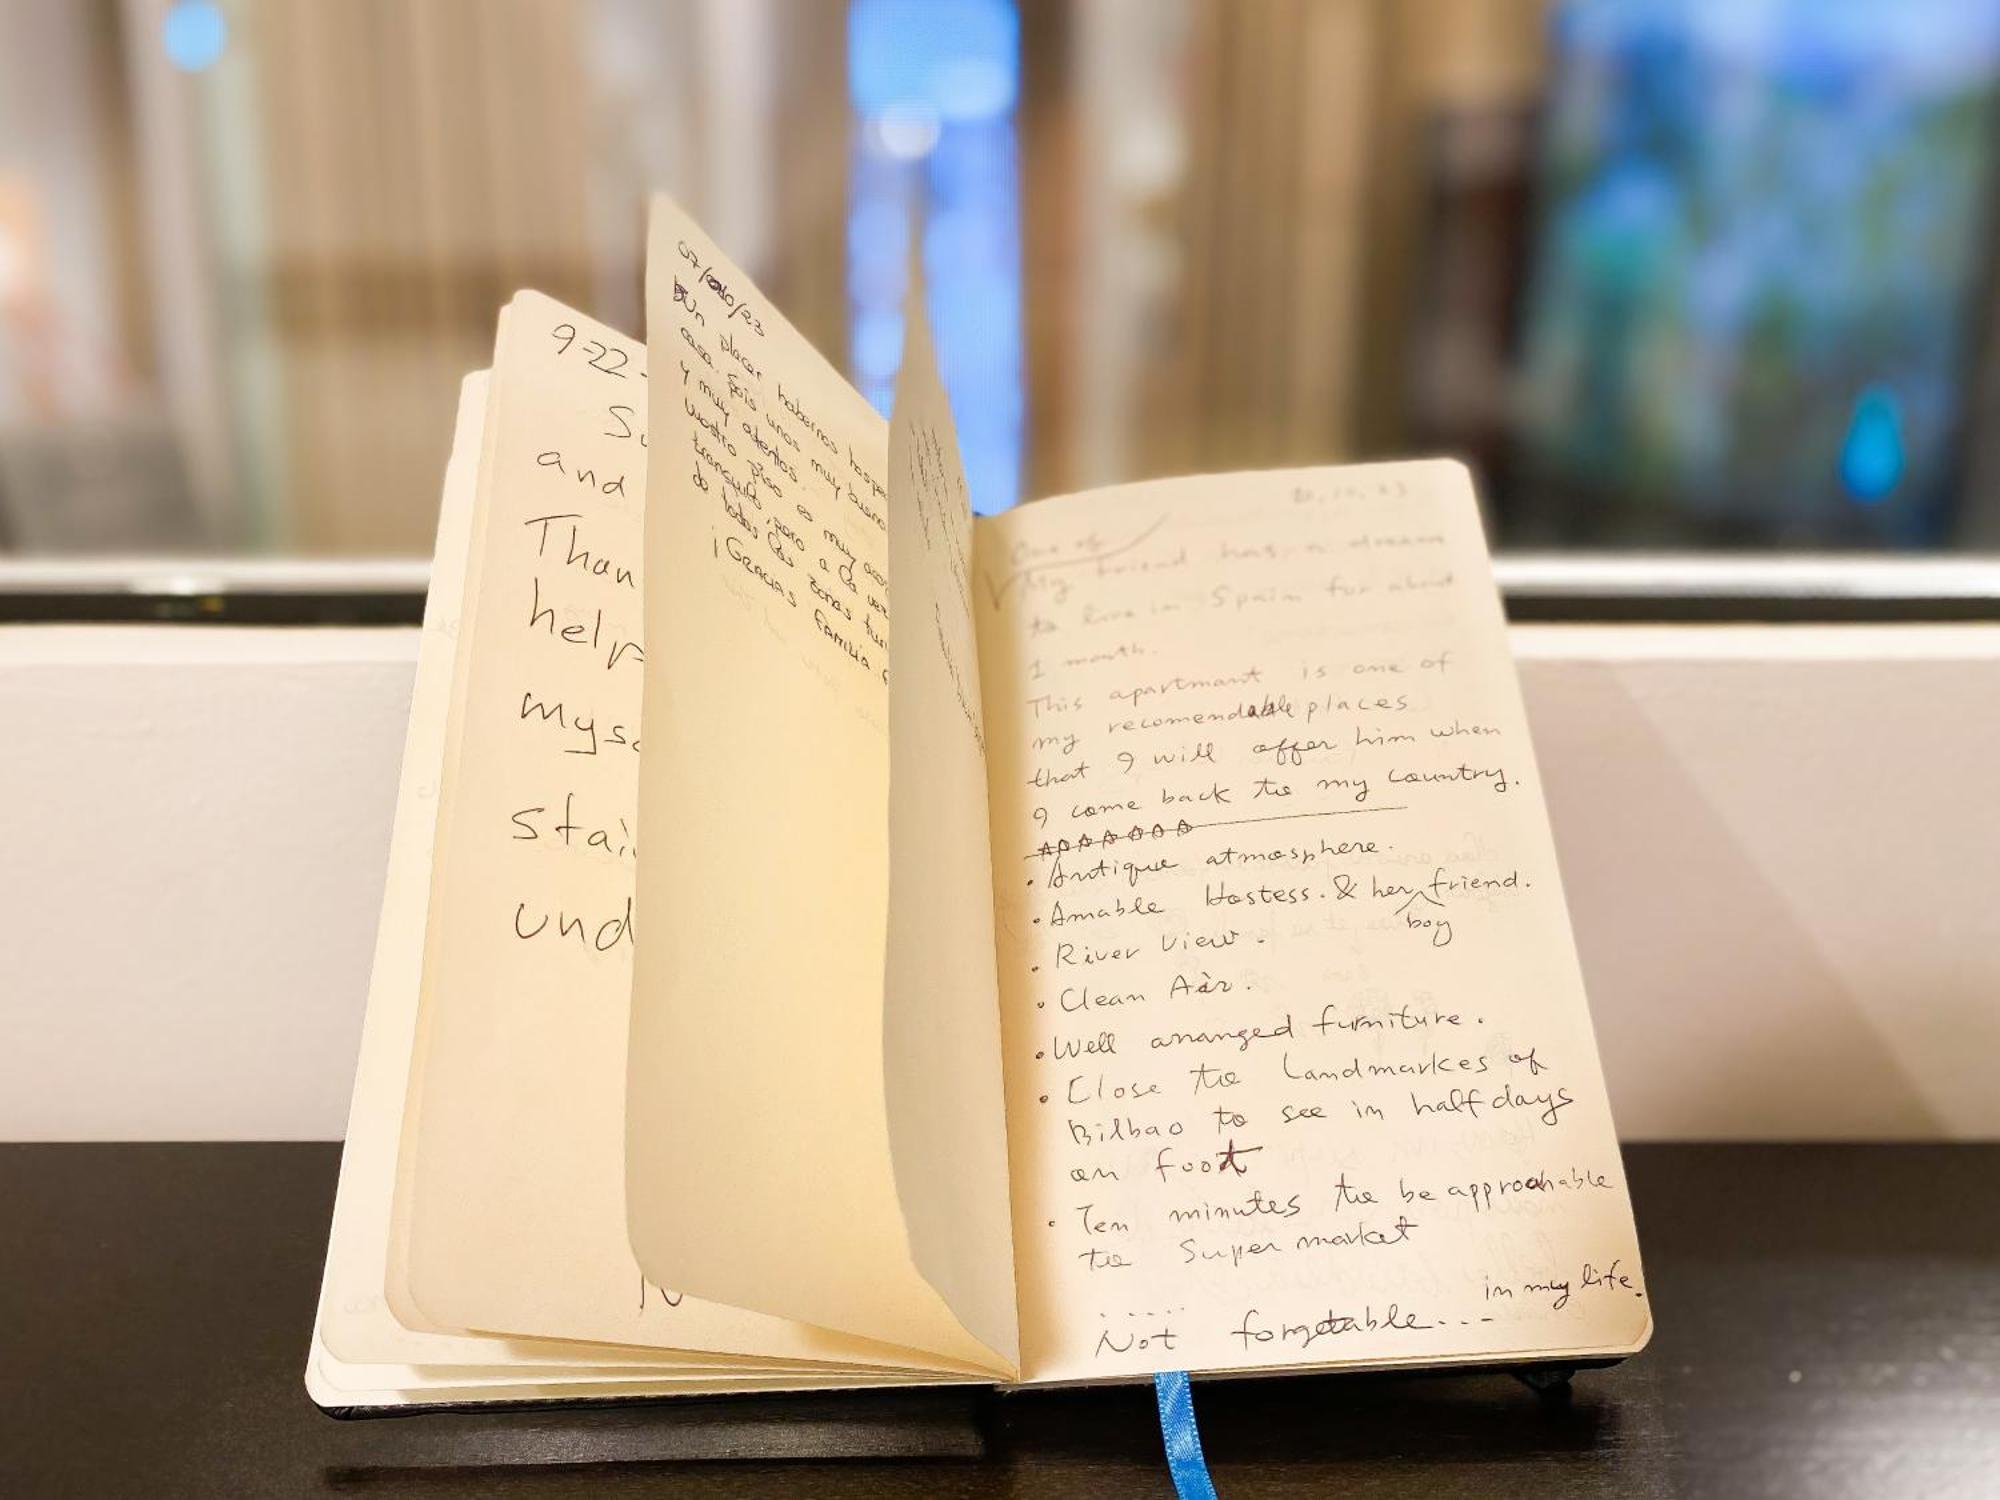 9-22-
and
Than
help
myse
stai
und
07/10/23
Un placer habernos hospe
casa. Sois unos muy buenos
y muy atentos.
Vuestro piso es muy aco
tranquilo, pero a la vez
de todas las zonas turí
¡GRACIAS FAMILIA
20.10.23
One of
My friend has a dream
to live in Spain for about
1 month.
This apartmant is one of
my recomendable places
that I will offer him when
I come back to my country.
• Antique atmosphere.
• Amable Hostess. & her friend.
boy
• River View.
• Clean Air.
• Well arranged furniture.
• Close to Landmarkes of
Bilbao to see in half days
on foot
• Ten minutes to be approachable
to Super market
.....
in my life.
Not forgetable...